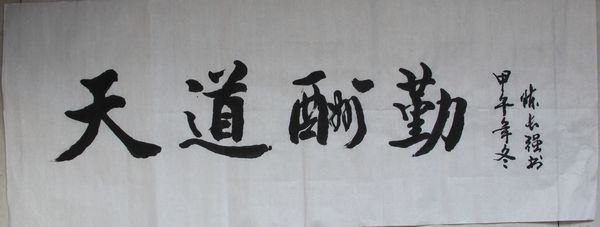 天道酬勤
甲午年冬
长强书